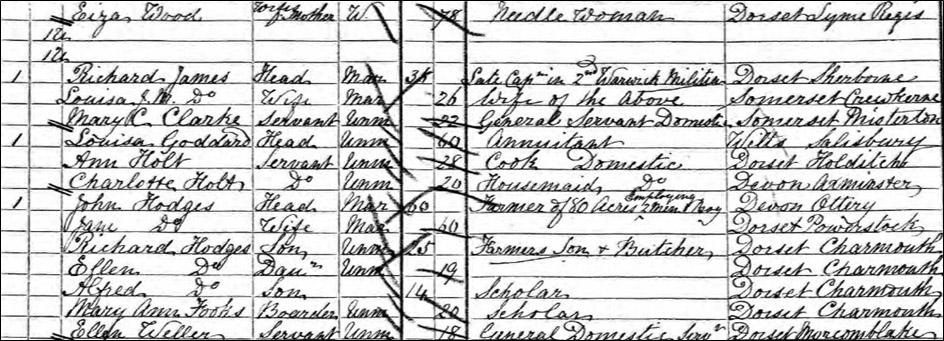 Eliza Wood mother W 78 Needle Woman Dorset Lyme Regis
1 Richard James Head Mar 35 Late Capn in 2nd Warwick Militia Dorset Sherborne
Louisa J.M. Do Wife Mar 26 Wife of the Above Somerset Crewkerne
Mary C. Clarke Servant Unm 22 General Servant Domestic Somerset Misterton
1 Louisa Goddard Head Unm 60 Annuitant Wilts Salisbury
Ann Holt Servant Unm 28 Cook Domestic Dorset Holditch
Charlotte Holt Do Unm 20 Housemaid Do Devon Axminster
1 John Hodges Head Mar 60 Farmer of 80 Acres Employing 2 men 1 boy Devon Ottery
Jane Do Wife Mar 60 Dorset Powerstock
Richard Hodges Son Unm 25 Farmers Son & Butcher Dorset Charmouth
Ellen Do Daur Unm 19 Dorset Charmouth
Alfred Do Son 14 Scholar Dorset Charmouth
Mary Ann Fooks Boarder Unm 20 Scholar Dorset Charmouth
Ellen Weller Servant Unm 18 General Domestic Servt Dorset Morcomblake